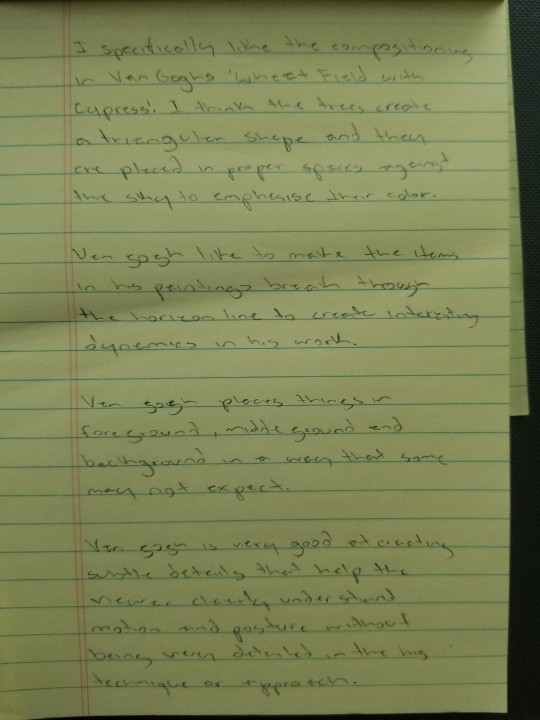 I specifically like the compositioning
in Van Goghs 'Wheat Field with
Cypress'. I think the trees create
a triangular shape and they
are placed in proper spaces against
the sky to emphasise their color.
Van gogh like to make the items
in his paintings break though
the horizon line to create interesting
dynamics in his work.
Van gogh places things in
foreground, middle ground and
background in a way that some
may not expect.
Van gogh is very good at creating
subtle details that help the
viewer clearly understand
motion and posture without
being very detailed in the his
technique or approach.